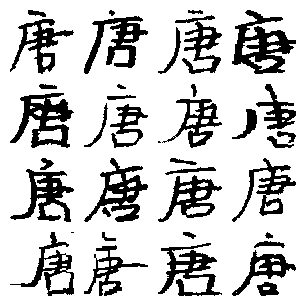 唐唐唐唐
唐唐唐唐
唐唐唐唐
唐唐唐唐